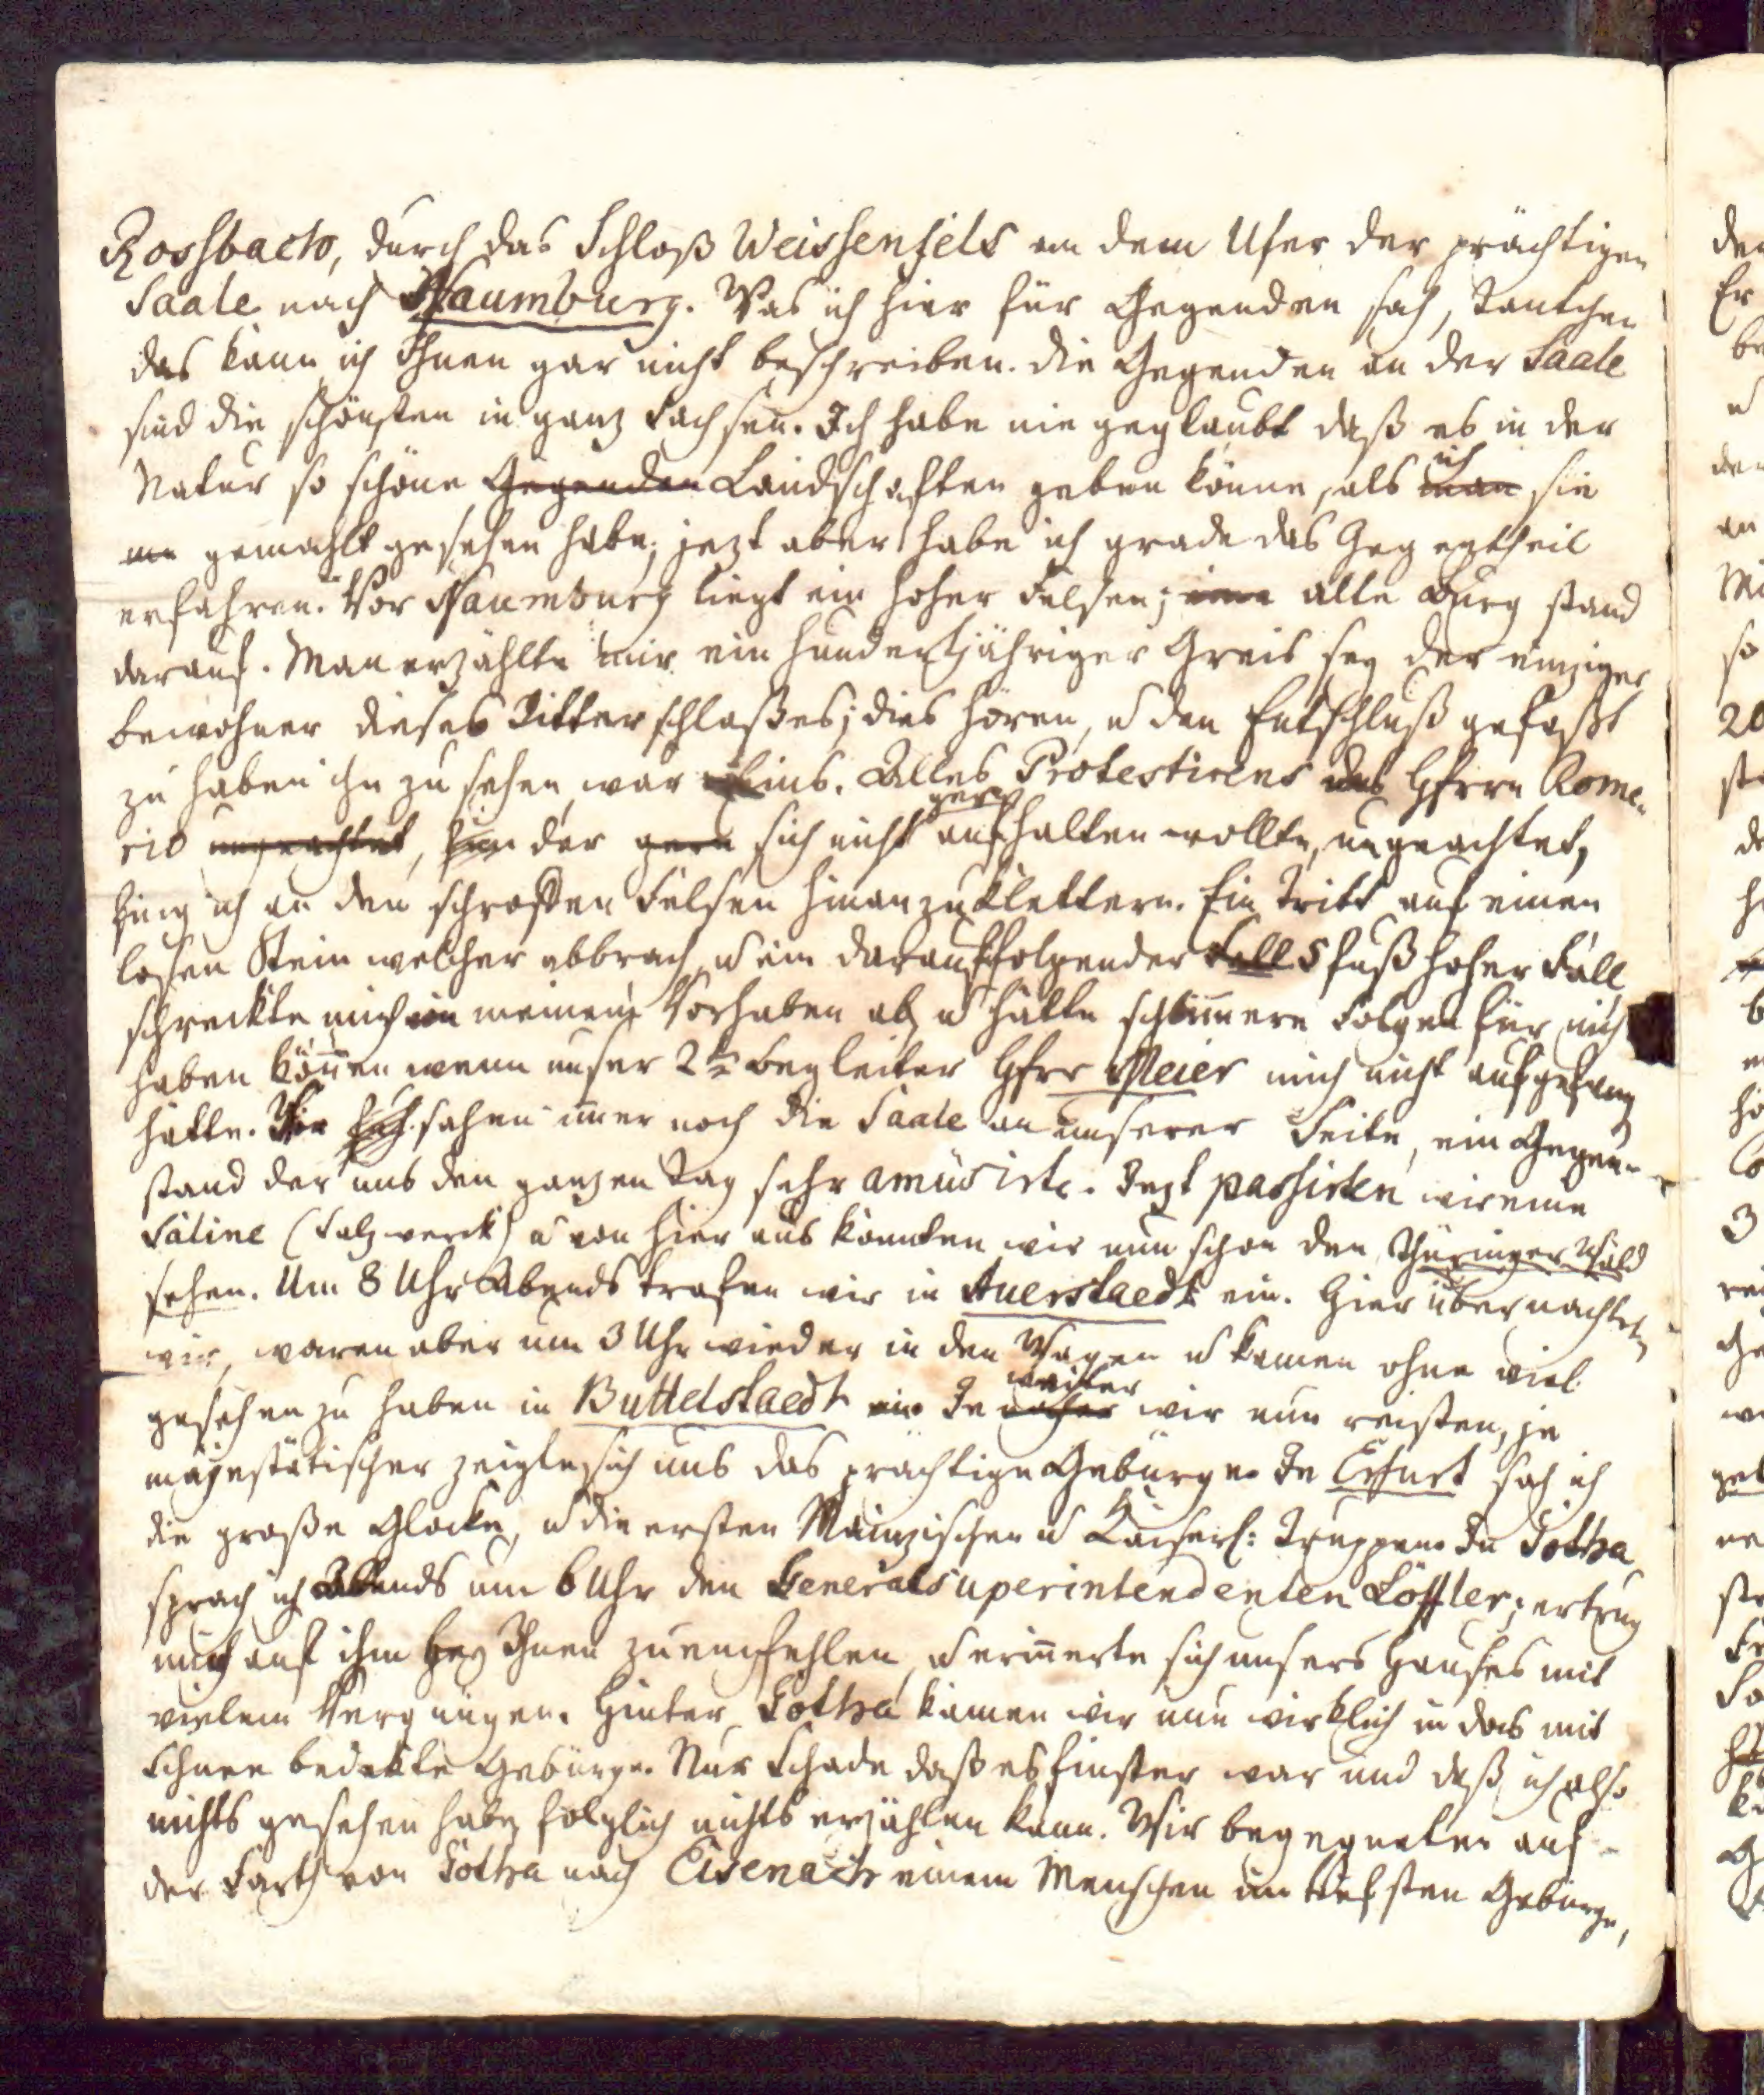 Rossbach, durch das Schloß Weissenfels an dem Ufer der prächtigen
Saale nach Naumburg. Was ich hier für Gegenden sah, Tantchen
das kann ich Ihnen gar nicht beschreiben. die Gegenden an der Saale
sind die schönsten in ganz Sachsen. Ich habe nie geglaubt daß es in der
Natur so schöne Gegenden Landschaften geben könne, als man ich sie
gemahlt gesehen habe; jezt aber habe ich grade das Gegentheil
erfahren. Vor Naumburg liegt ein hoher Felsen; eine alte Burg stand
darauf. Man erzählte mir ein hundertjähriger Greis sey der einzige
bewohner dieses Ritterschloßes; dies hören, u den Entschluß gefaßt
zu haben ihn zu sehen, war Eins. Alles Protestirens des Hherrn Rome-
rio ungeachtet, der gern sich nicht gern aufhalten wollte, ungeachtet,
fing ich an den schroffen Felsen hinanzuklettern. Ein Tritt auf einen
losen Stein welcher abbrach, u ein darauffolgender Fall 5 fuß hoher Fall
schreckte mich in meinem Vorhaben ab, u hätte schlimmere Folgen für mich
haben können wenn unser 2te Begleiter Hherr Meier mich nicht aufgefang
hätte. Wir sah sahen immer noch die Saale an unserer Seite, ein Gegen-
stand der uns den ganzen Tag sehr amüsirte. Jezt passirten wir eine
Saline (Salzwerck) u von hier aus konnten wir nun schon den Thüringer Wald
sehen. Um 8 Uhr Abends trafen wir in Auerstaedt ein. Hier übernachteten
wir, waren aber um 3 Uhr wieder in den Wagen u kamen ohne viel
gesehen zu haben in Buttelstaedt ein Je näher weiter wir nun reisten, je
majestätischer zeigte sich uns das prächtige Gebürge. In Erfurt sah ich
die große Glocke, u die ersten Mainzischen u Kaiserl: Truppen. In Gotha
sprach ich Abends um 6 Uhr den Generalsuperintendenten Löffler; er trug
mir auf ihm bey Ihnen zu empfehlen, u erinnerte sich unsers Hauses mit
vielem Vergnügen. Hinter Gotha kamen wir nun wirklich in das mit
Schnee bedekte Gebürge. Nur Schade daß es finster war und daß ich also
nichts gesehen habe, folglich nichts erzählen kann. Wir begegneten auf
der Farth von Gotha nach Eisenach einem Menschen im tiefsten Gebürge,